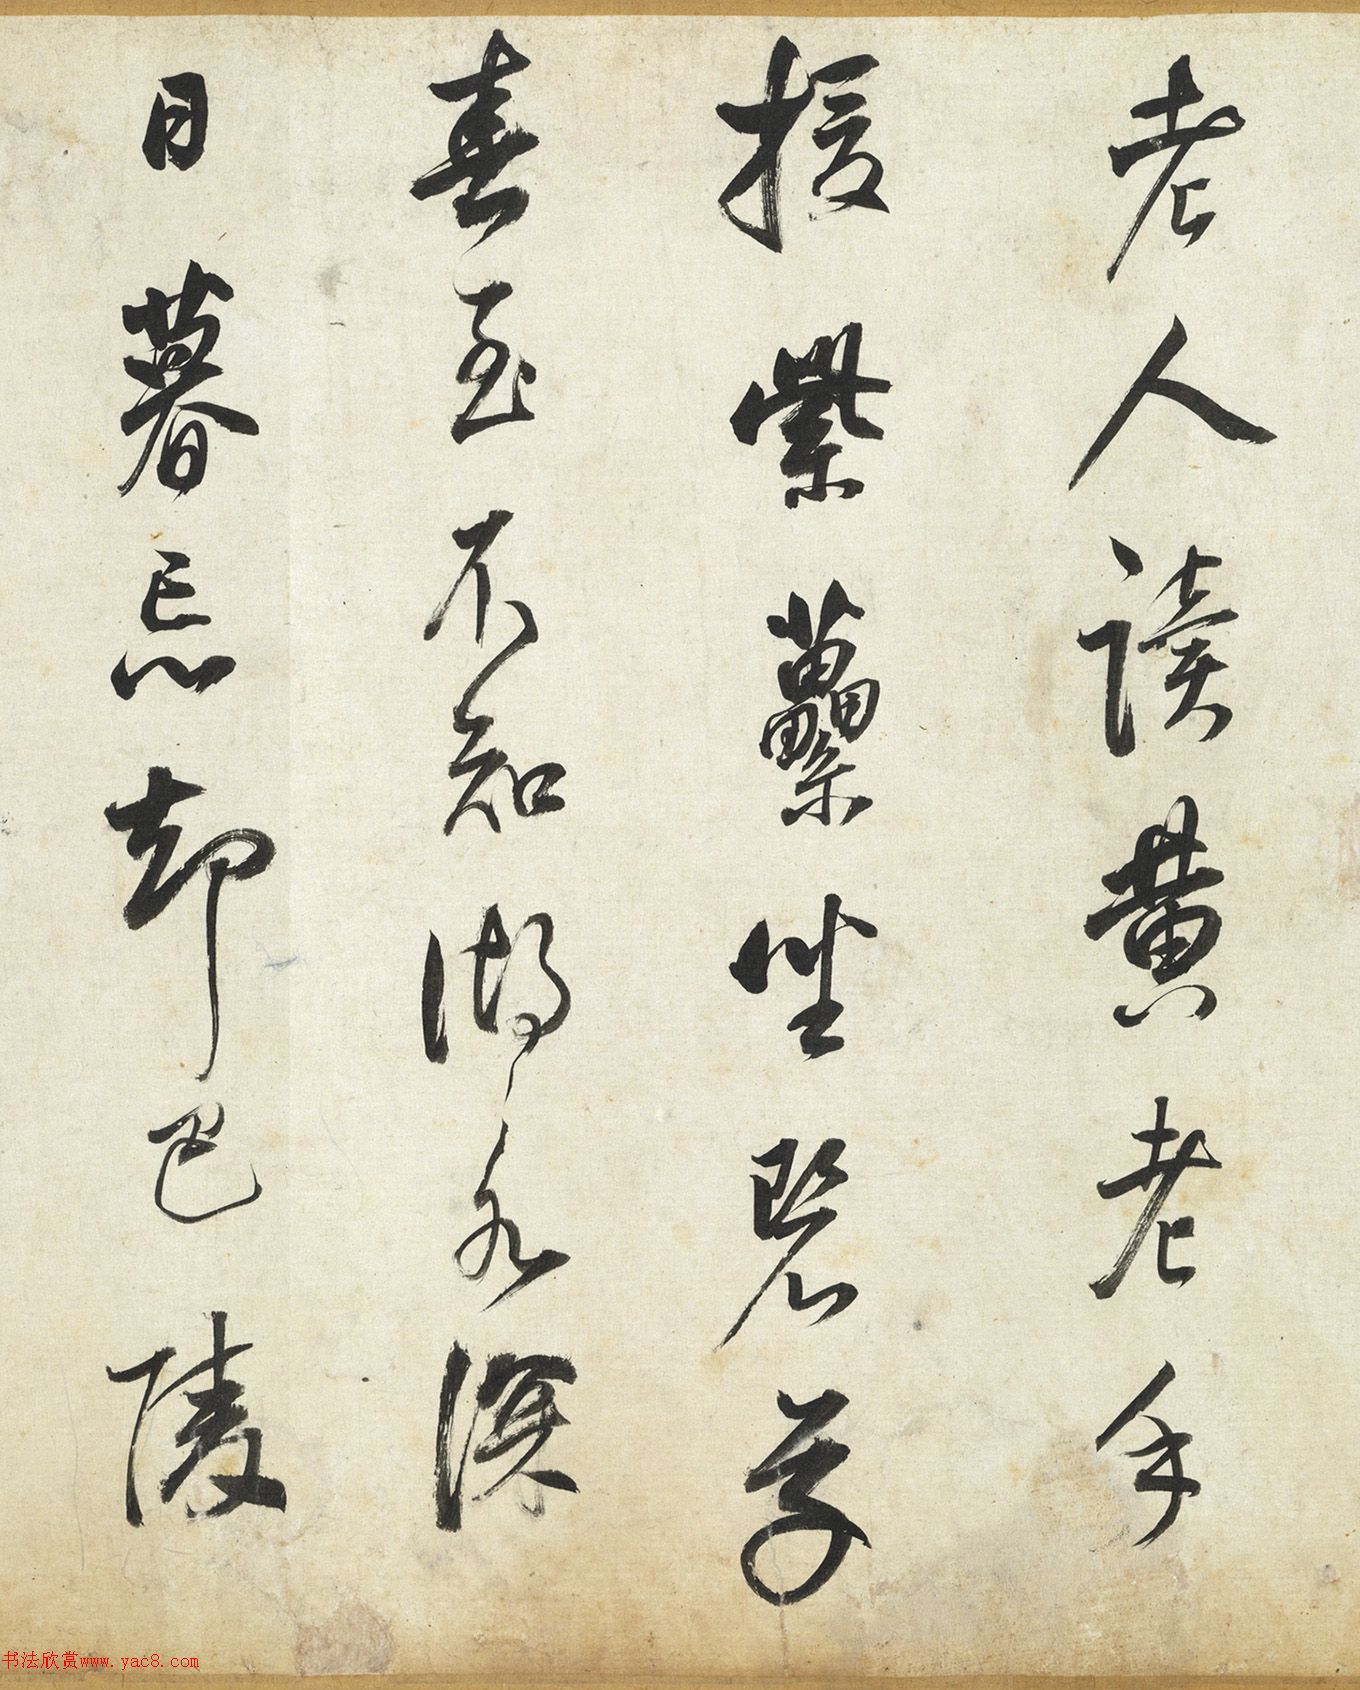 老人讀黃老手
援紫藟坐碧草
春至不知湖水深
日暮忘却巴陵
书法欣赏www.yac8.com